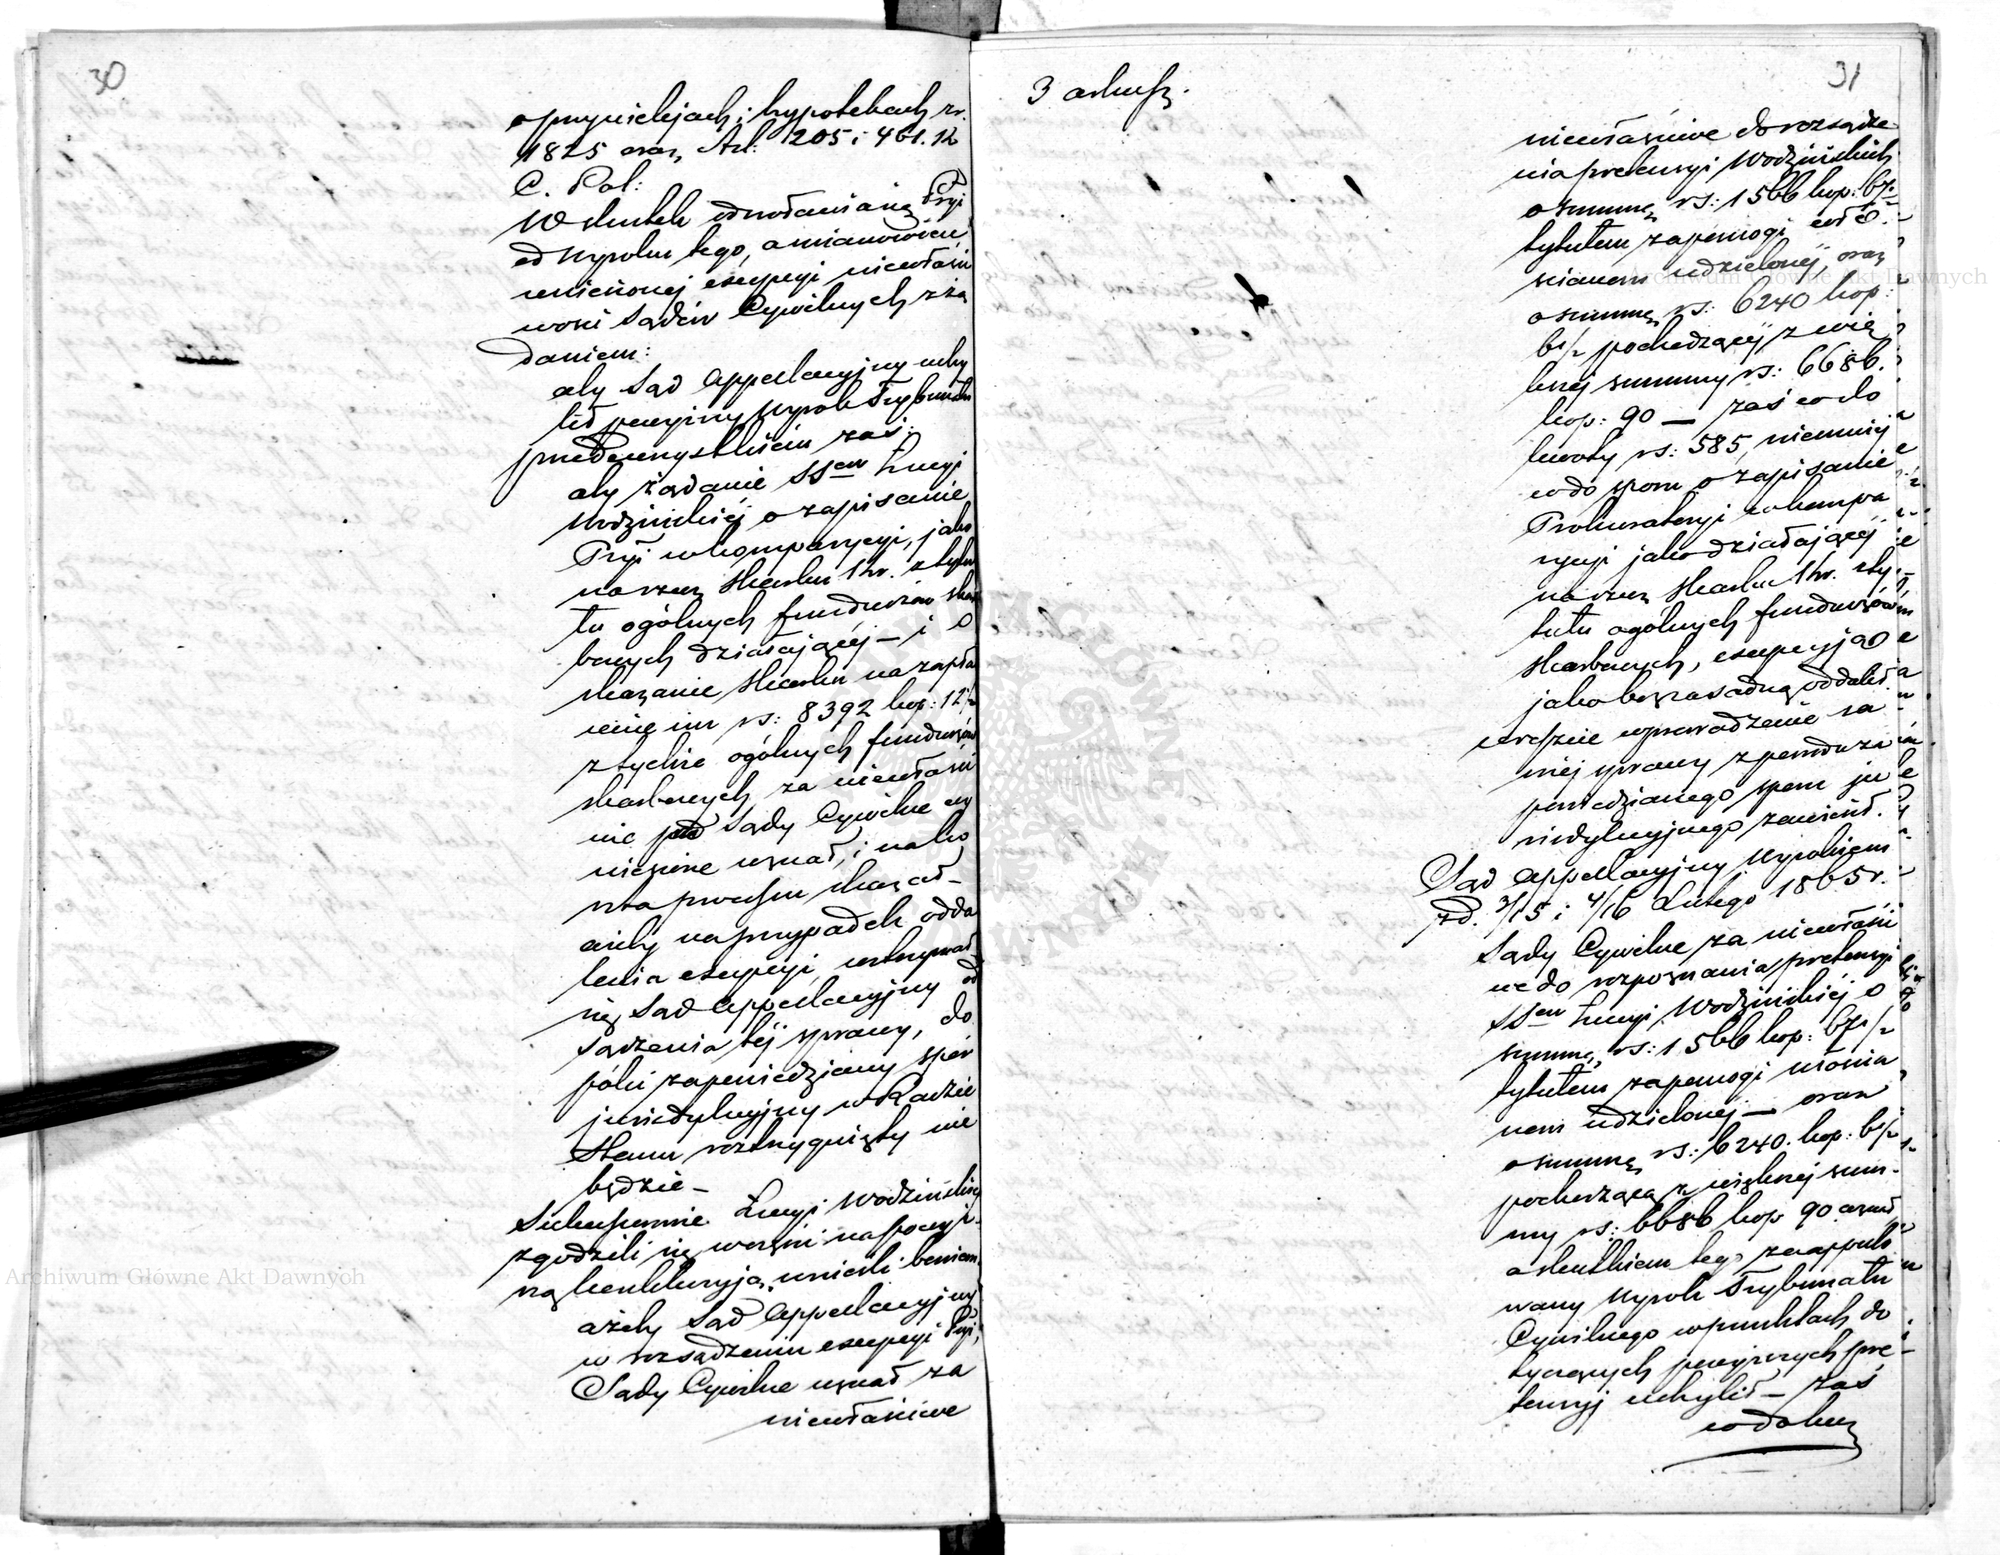 30
o przywilejach i hypotekach z r.
1825 oraz Art: 205 i 461. K
C. Pol:
W skutek odwołania się Pryi
od wyroku tego, a mianowicie
wniesionej excepcyi niewłaści
wości Sądów Cywilnych z żą
daniem:
aby Sąd Appellacyjny uchy
lił powyższy Wyrok Trybunału
przedewszystkiém zaś:
aby żądanie SSrów Łucyi
Wodzińskiéj o zapisanie
Pryi w komparycyi, jako
na rzecz Skarbu Kr. z tytu
łu ogólnych funduszów skar
bowych działającéj — i o
skazanie Skarbu na zapła
cenie im rs: 8392 kop: 12 1/2
z tychże ogólnych funduszów
skarbowych, za niewłaści
nie pod Sądy Cywilne wy
niesione uznał, i na ko
szta processu skazał —
ażeby na przypadek odda
lenia excepcyi, wstrzymał
się Sąd Appellacyjny od
sądzenia téj sprawy, do
póki zapowiedziany spór
jurisdykcyjny w Radzie
Stanu rozstrzygnięty nie
będzie —
Sukcessorowie Łucyi Wodzińskiéj
zgodzili się
ażeby Sąd Appellacyjny
w rozsądzeniu excepcyi Pryi,
Sądy Cywilne uznał za
niewłaściwe
3 arkusz.
31
niewłaściwe do rozsądze
nia pretensyi Wodzińskich
o summę rs: 1566 kop: 67 1/2
tytułem zapomogi włó
scianom udzielonéj, oraz
o summę rs: 6240 kop:
6 1/2 pochodzącéj z wię
kszéj summy rs: 6686.
kop: 90 — zaś co do
kwoty rs: 585, niemniéj
co do sporu o zapisanie
Prokuratoryi w kompa
rycyi jako działającéj
na rzecz Skarbu Kr. z ty
tułu ogólnych funduszów
skarbowych, excepcyją
jako bezzasadną oddalił
wreszcie wprowadzenie sa
méj sprawy z powodu za
powiedzianego sporu ju
risdykcyjnego zawiesił.
Sąd Appellacyjny Wyrokiem
z d. 3/15 i 4/16 Lutego 1865 r.
Sądy Cywilne za niewłaści
we do rozpoznania pretensyi
SSrów Łucyi Wodzińskiéj o
summę rs: 1566 kop: 67 1/2
tytułem zapomogi włościa
nom udzielonéj — oraz
o summę rs: 6240. kop: 6 1/2
pochodzącą z większéj sum-
my rs: 6686 kop 90 uznał
a skutkiem tego zaappello
wany Wyrok Trybunału
Cywilnego w punktach do
tyczących powyższych pre
tensyj uchylił — zaś
co do kwoty
Archiwum Główne Akt Dawnych
Archiwum Główne Akt Dawnych